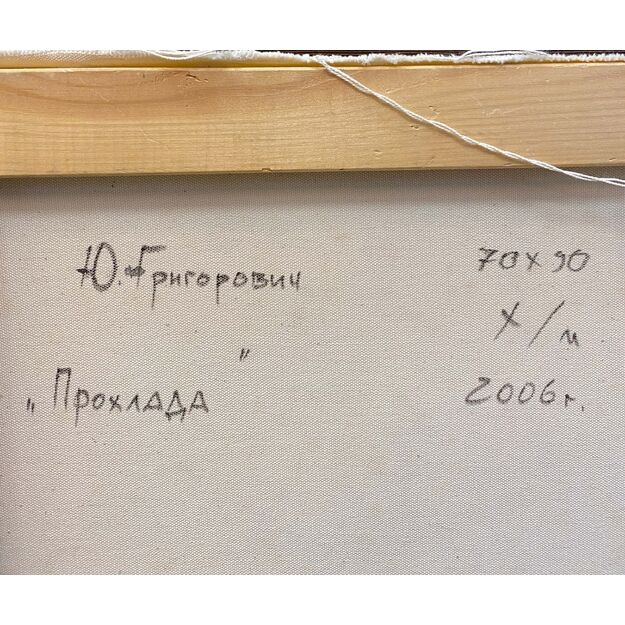 Ю. Григорович
70 x 90
х/м
„Прохлада"
2006 г.